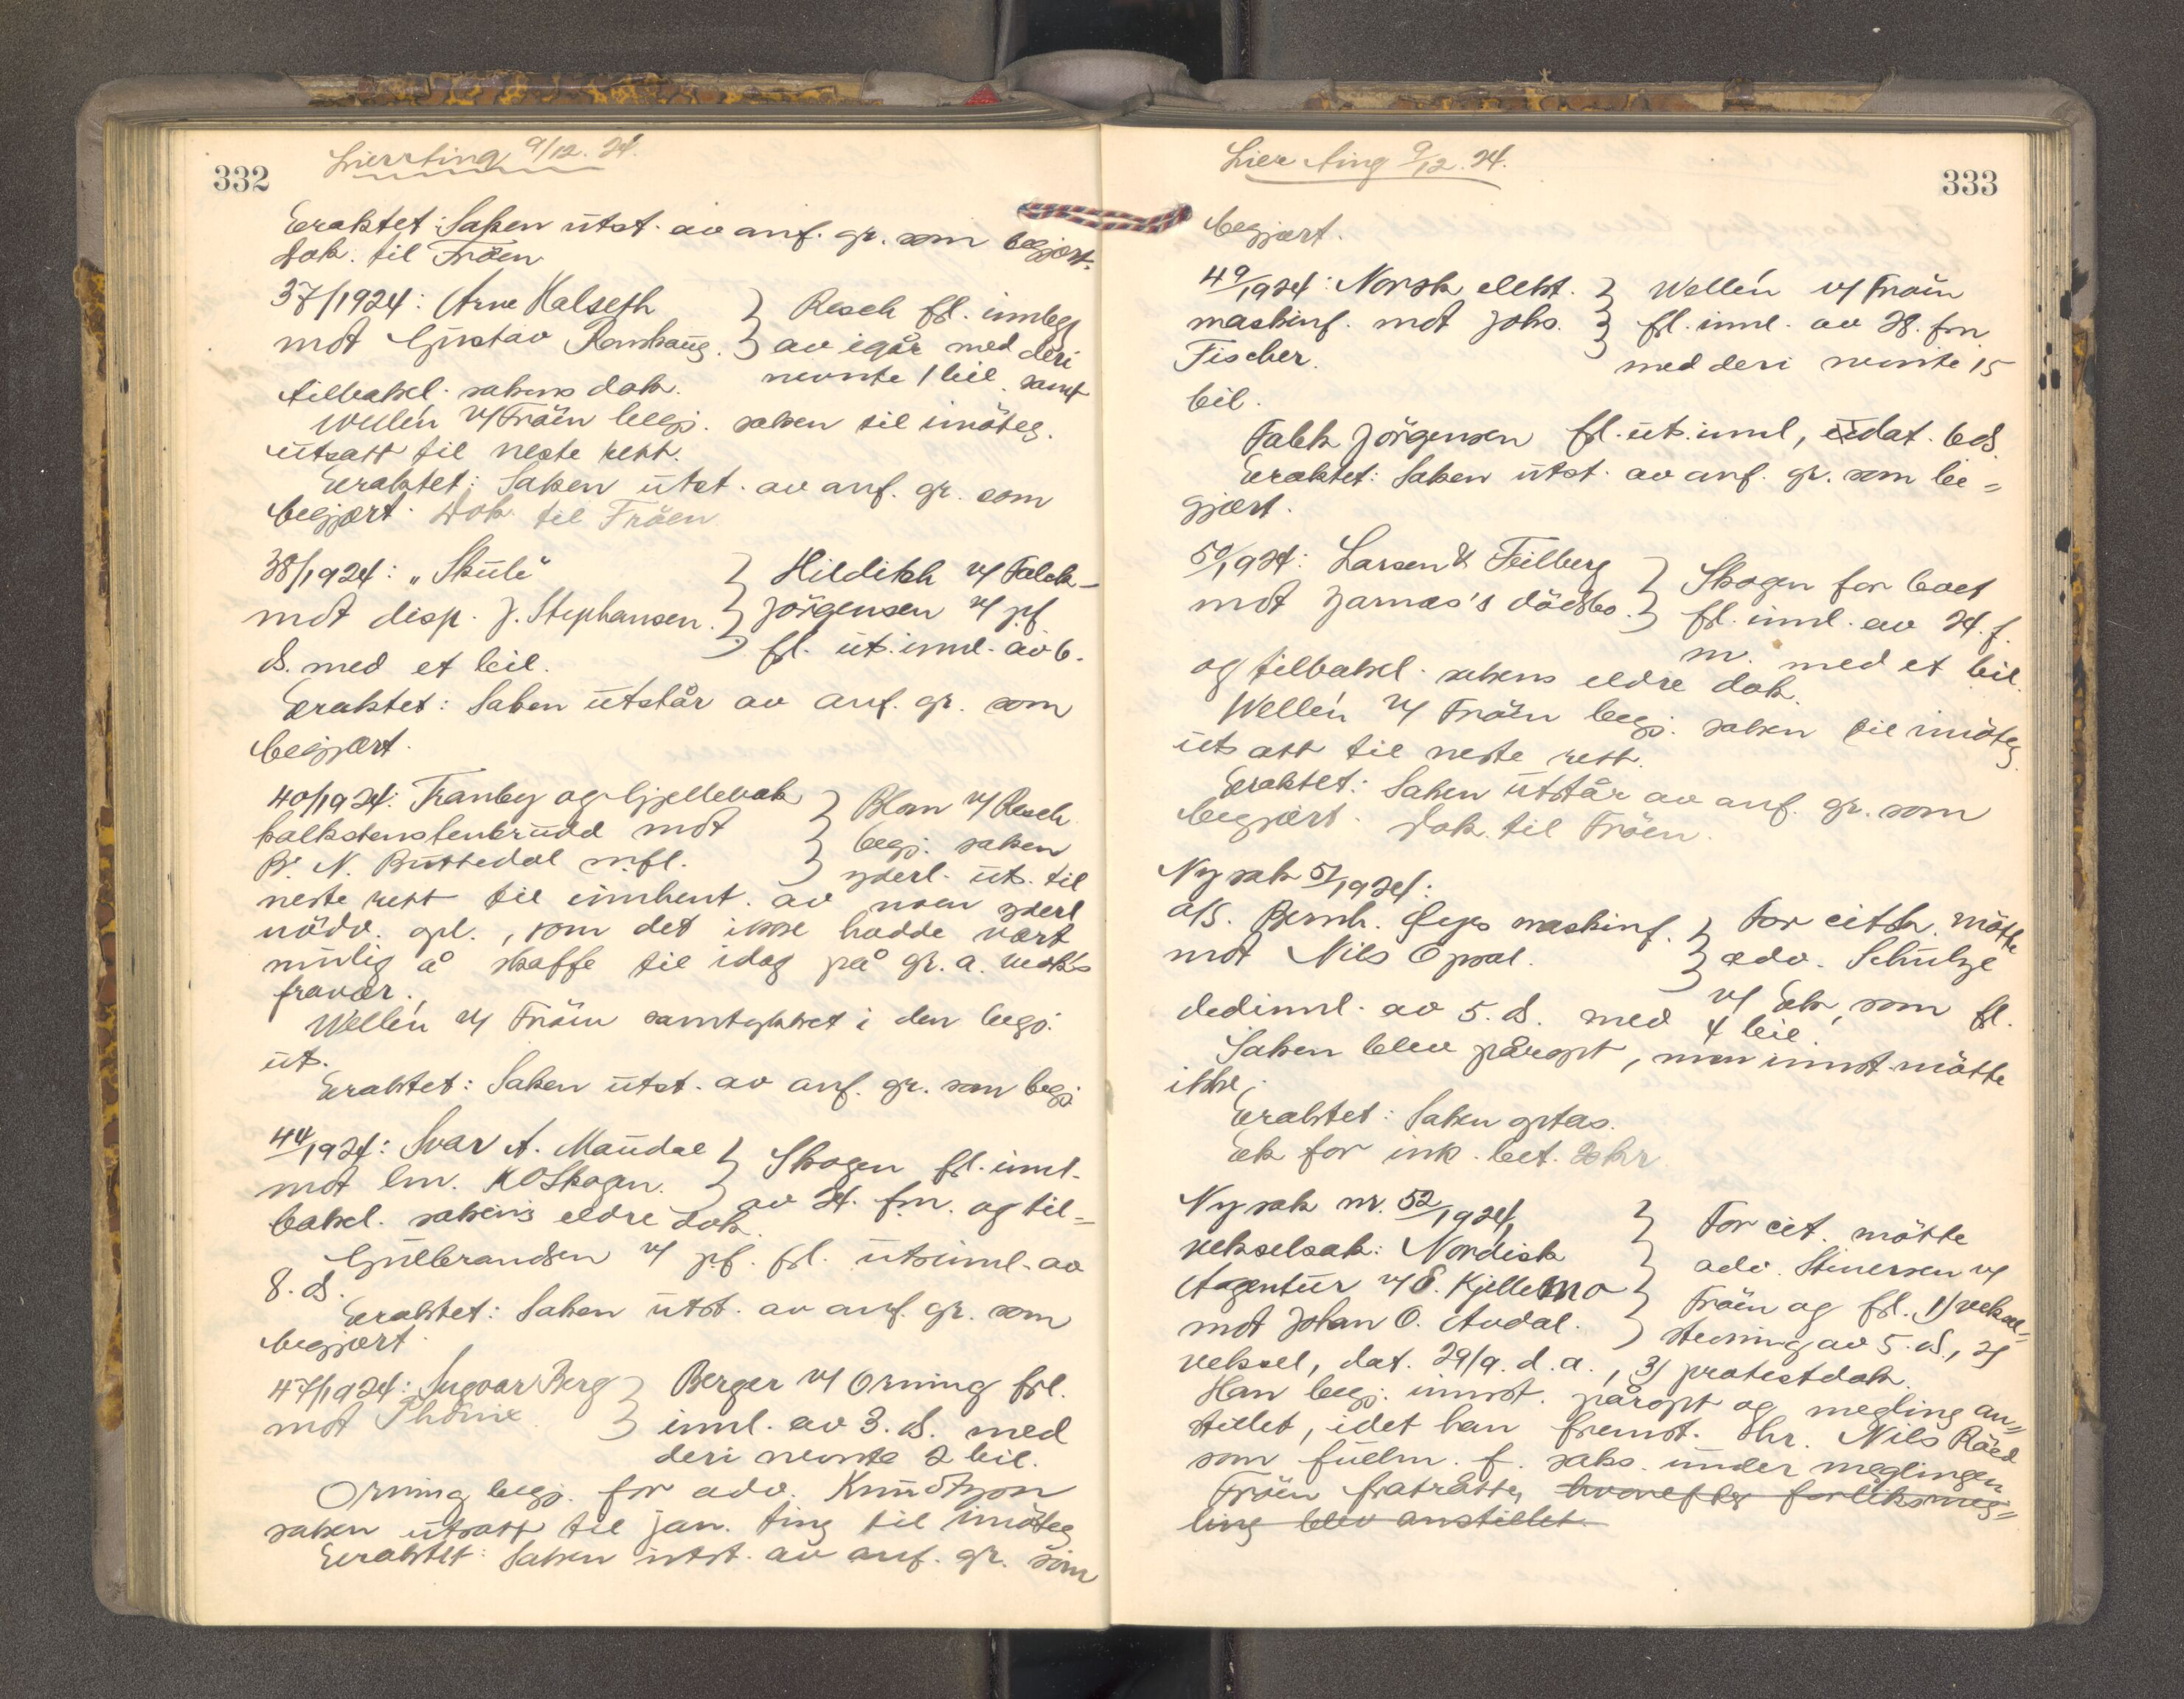 332
Lierting 9/12. 24.
Eraktet: Saken utst. av anf. gr. som begjært.
Dok. til Fröen
37/1924: Arne Halseth } Resch fl. innlegg
mot Gustav Ramhaug. } av igår med deri
tilbakel. sakens dok. nevnte 1 bil. samt
Wellén v/ Fröen begj. saken til imöteg.
utsatt til neste rett.
Eraktet: Saken utst. av anf. gr. som
begjært. Dok. til Fröen
38/1924: „Skule" } Hilditch v/ Falck-
mot disp. J. Stephansen. } Jörgensen v/ p.f.
ds. med et bil. fl. uts. innl. av 6.
Eraktet: Saken utstår av anf. gr. som
begjært.
40/1924: Tranby og Gjellebæk } Blom v/ Resch
kalkstenstenbrudd mot } begj. saken
N. Buttedal m.fl. } yderl. uts. til
neste rett til innhent. av noen yderl
nödv. opl., som det ikke hadde vært
mulig å skaffe til idag på gr. a.
fravær.
Wellén v/ Fröen samtykket i den begj.
uts.
Eraktet: Saken utst. av anf. gr. som begj.
44/1924: Svar A. Maudal } Skogen fl. innl.
mot lm. K O Skogen. } av 24. f.m. og til=
bakel. sakens eldre dok.
Gulbrandsen v/ p.f. fl. uts innl. av
8. ds.
Eraktet: Saken utst. av anf. gr. som
begjært.
47/1924: Ingvar Berg } Berger v/ Orning fl.
mot Phönix. } innl. av 3. ds. med
deri nevnte 2 bil.
Orning begj. for adv. Knudtzon
saken utsatt til jan. ting til imöteg
Eraktet: Saken utst. av anf. gr. som
333
Lier ting 9/12. 24.
begjært.
49/1924: Norsk elekt. } Wellén v/ Fröen
maskinf. mot Johs. } fl. innl. av 28. f.m.
Fischer. med deri nevnte 15
bil.
Falck Jörgensen fl. uts. innl, udat. ds.
Eraktet: Saken utst. av anf. gr. som be=
gjært.
50/1924: Larsen & Feilberg } Skogen for boet
mot Jarnæs's dödsbo. } fl. innl. av 24. f.
m. med et bil.
og tilbakel. sakens eldre dok.
Wellén v/ Fröen begj. saken til imöteg
uts att til neste rett.
Eraktet: Saken utstår av anf. gr. som
begjært. Dok. til Fröen.
Ny sak 51/1924:
A/S. Bernh. maskinf. } For citt. mötte
mot Nils Opsal. } adv. Schulze
v/ Eek, som fl.
dedinnl. av 5. ds. med 4 bil.
Saken blev påropt, men innst. mötte
ikke.
Eraktet: Saken optas.
Eek for ink. bet. 20 kr
Ny sak nr. 52/1924, } For cit. mötte
vekselsak: Nordisk } adv. Stenersen v/
Agentur v/ E. Kjellemo } Fröen og fl. 1) veksel=
mot Johan O. Audal. } stevning av 5. ds., 2)
veksel, dat. 29/9. d.a., 3) protestdok.
Han begj. innst. påropt og megling an=
stillet, idet han fremst. hr. Nils Råed
som fullm. f. saks. under meglingen
Fröen fratrådte, hvorefter forliksmeg=
ling blev anstillet.